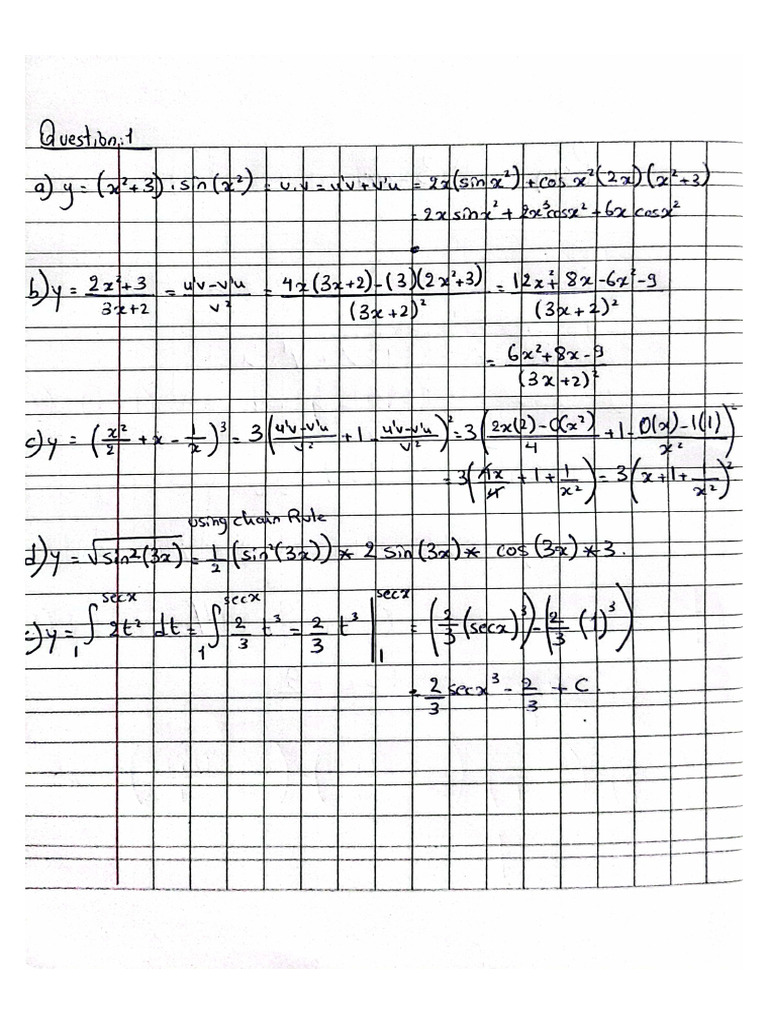 Question:1
a) y = (x²+3) · sin(x²) = u.v = u'v + v'u = 2x(sin x²) + cos x² (2x)(x²+3)
= 2x sin x² + 2x³ cos x² + 6x cos x²
b) y = (2x²+3)/(3x+2) = (u'v - v'u)/v² = (4x(3x+2) - (3)(2x²+3))/(3x+2)² = (12x² + 8x - 6x² - 9)/(3x+2)²
= (6x² + 8x - 9)/(3x+2)²
c) y = (x²/2 + x - 1/x)³ = 3((u'v - v'u)/v² + 1 - (u'v - v'u)/v²)² = 3((2x(2) - 0(x²))/4 + 1 - (0(x) - 1(1))/x²)²
= 3(4x/4 + 1 + 1/x²) = 3(x + 1 + 1/x²)²
using chain Rule
d) y = √(sin²(3x)) = 1/2 (sin²(3x)) * 2 sin(3x) * cos(3x) * 3.
e) y = ∫₁^secx 2t² dt = ∫₁^secx 2/3 t³ = 2/3 t³ |₁^secx = (2/3 (secx)³) - (2/3 (1)³)
= 2/3 secx³ - 2/3 + C.